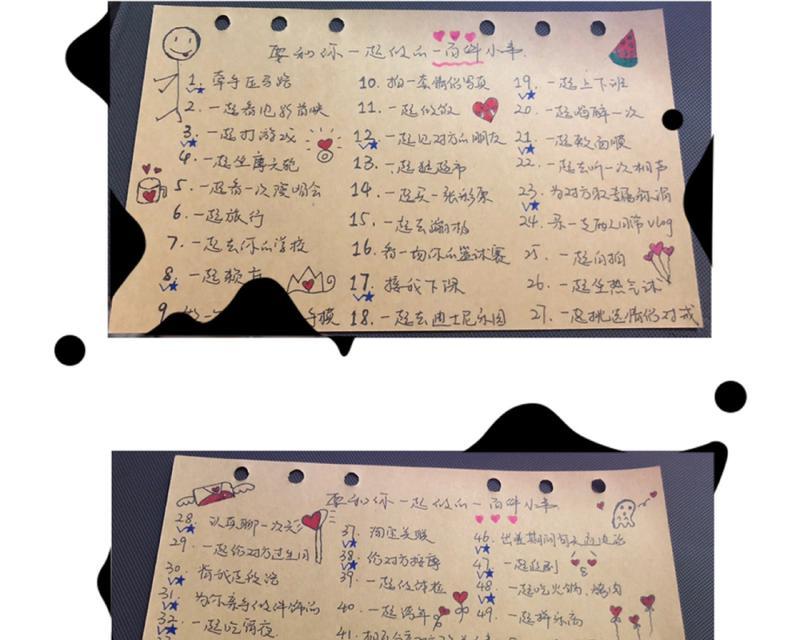 要和你一起做的一百件小事.
1. 牵手压马路
2. 一起看电影首映
3. 一起打游戏
4. 一起坐摩天轮
5. 一起看一次演唱会
6. 一起旅行
7. 一起去你的学校
8. 一起
9. 手模
10. 拍一套情侣写真
11. 一起做饭
12. 一起见对方的朋友
13. 一起逛超市
14. 一起买一张彩票
15. 一起去
16. 看一场你的篮球赛
17. 接我下课
18. 一起去迪士尼乐园
19. 一起上下班
20. 一起喝醉一次
21. 一起敷面膜
22. 一起去听一次相声
23. 为对方
24. 录一支两人日常vlog
25. 一起自拍
26. 一起坐热气球
27. 一起挑选情侣对戒
要和你一起做的一百件小事
28. 认真聊一次天
29. 一起给对方过生日
30.
31. 为你亲手做件饰品
32. 一起吃宵夜
37. 淘宝关联
38. 给对方按摩
39. 一起做体检
40. 一起跨年
41.
46. 出差期间每天
47. 一起追剧
48. 一起吃火锅、烤肉
49. 一起拼乐高